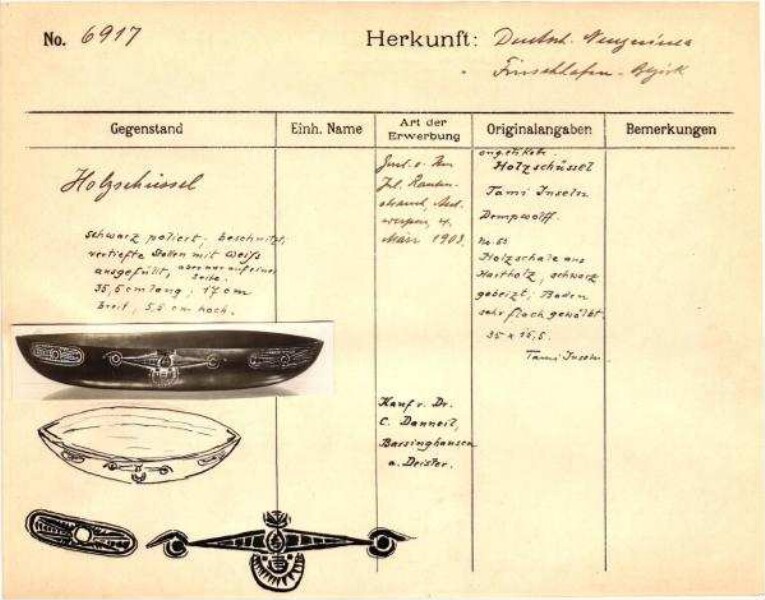 No. 6917
Herkunft: Deutsch. Neuguinea
Finschhafen - Bezirk
Gegenstand
Einh. Name
Art der
Erwerbung
Originalangaben
Bemerkungen
Holzschüssel
schwarz poliert, beschnitzt,
vertiefte Stellen mit Weiß
ausgefüllt, aber nur auf einer
Seite.
35,5 cm lang; 17 cm
breit, 5,5 cm hoch.
Jul. Rauten-
strauch, Ant-
werpen, 4.
März 1903.
Kauf v. Dr.
C. Danneil,
Barsinghausen
a. Deister.
Holzschüssel
Tami Inseln
Dempwolff.
Holzschale aus
Hartholz, schwarz
gebeizt; Boden
sehr flach gewölbt.
35 x 15,5.
Tami Inseln.